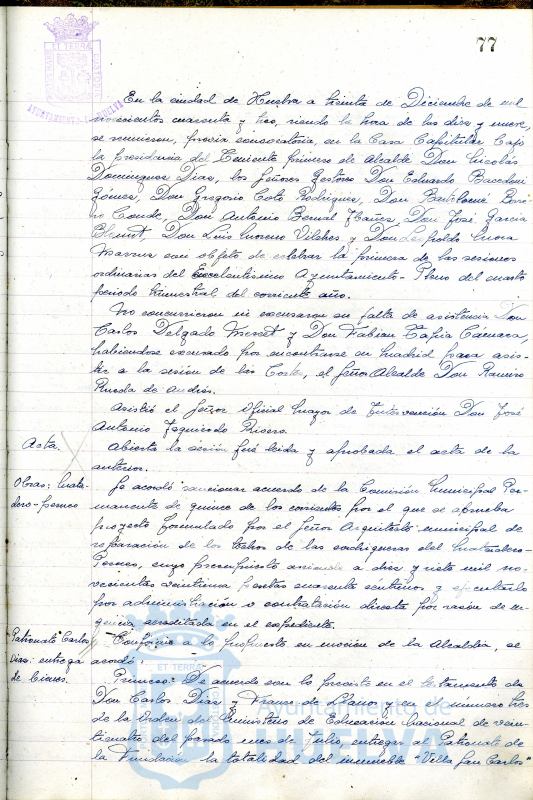 77
En la ciudad de Huelva a treinta de Diciembre de mil
novecientos cuarenta y tres, siendo la hora de las diez y nueve,
se reunieron, previa convocatoria, en la Casa Capitular bajo
la presidencia del Teniente primero de Alcalde Don Nicolás
Dominguez Diaz, los Señores Gestores Don Eduardo
Gómez, Don Gregorio Coto Rodriguez, Don Bartolomé
Conde, Don Antonio Bernal Ibañez, Don José Garcia
Don Luis Moreno Vilches y Don Leopoldo Mora
con objeto de celebrar la primera de las sesiones
ordinarias del Excelentisimo Ayuntamiento-Pleno del cuarto
periodo trimestral del corriente año.
No concurrieron ni excusaron su falta de asistencia Don
Carlos Delgado y Don Fabian Tapia Cámara,
habiéndose excusado por encontrarse en Madrid para asis-
tir a la sesion de las Cortes, el Señor Alcalde Don Ramiro
Rueda de Andrés.
Asistió el Señor Oficial Mayor de Intervención Don José
Antonio Izquierdo Risero.
Acta.
Abierta la sesión fué leida y aprobada el acta de la
anterior.
Obras: Mata-
dero-porcino
Se acordó sancionar acuerdo de la Comisión Municipal Per-
manente de quince de los corrientes por el que se aprueba
proyecto formulado por el Señor Arquitecto municipal de
reparación de los techos de las cochiqueras del Matadero-
Porcino, cuyo presupuesto asciende a diez y siete mil no-
vecientas veintiuna pesetas cuarenta céntimos y ejecutarlo
por administración o contratación directa por razón de ur-
gencia acreditada en el expediente.
"Patronato Carlos
Diaz: entrega
de bienes.
Conforme a lo propuesto en mocion de la Alcaldia, se
acordó:
Primero: De acuerdo con lo previsto en el testamento de
Don Carlos Diaz y Franco de Llanos y en el número tres
de la Orden del Ministerio de Educación Nacional de vein-
ticuatro del pasado mes de Julio, entregar al Patronato de
la Fundación la totalidad del inmueble "Villa San Carlos"
Ayuntamiento de
HUELVA